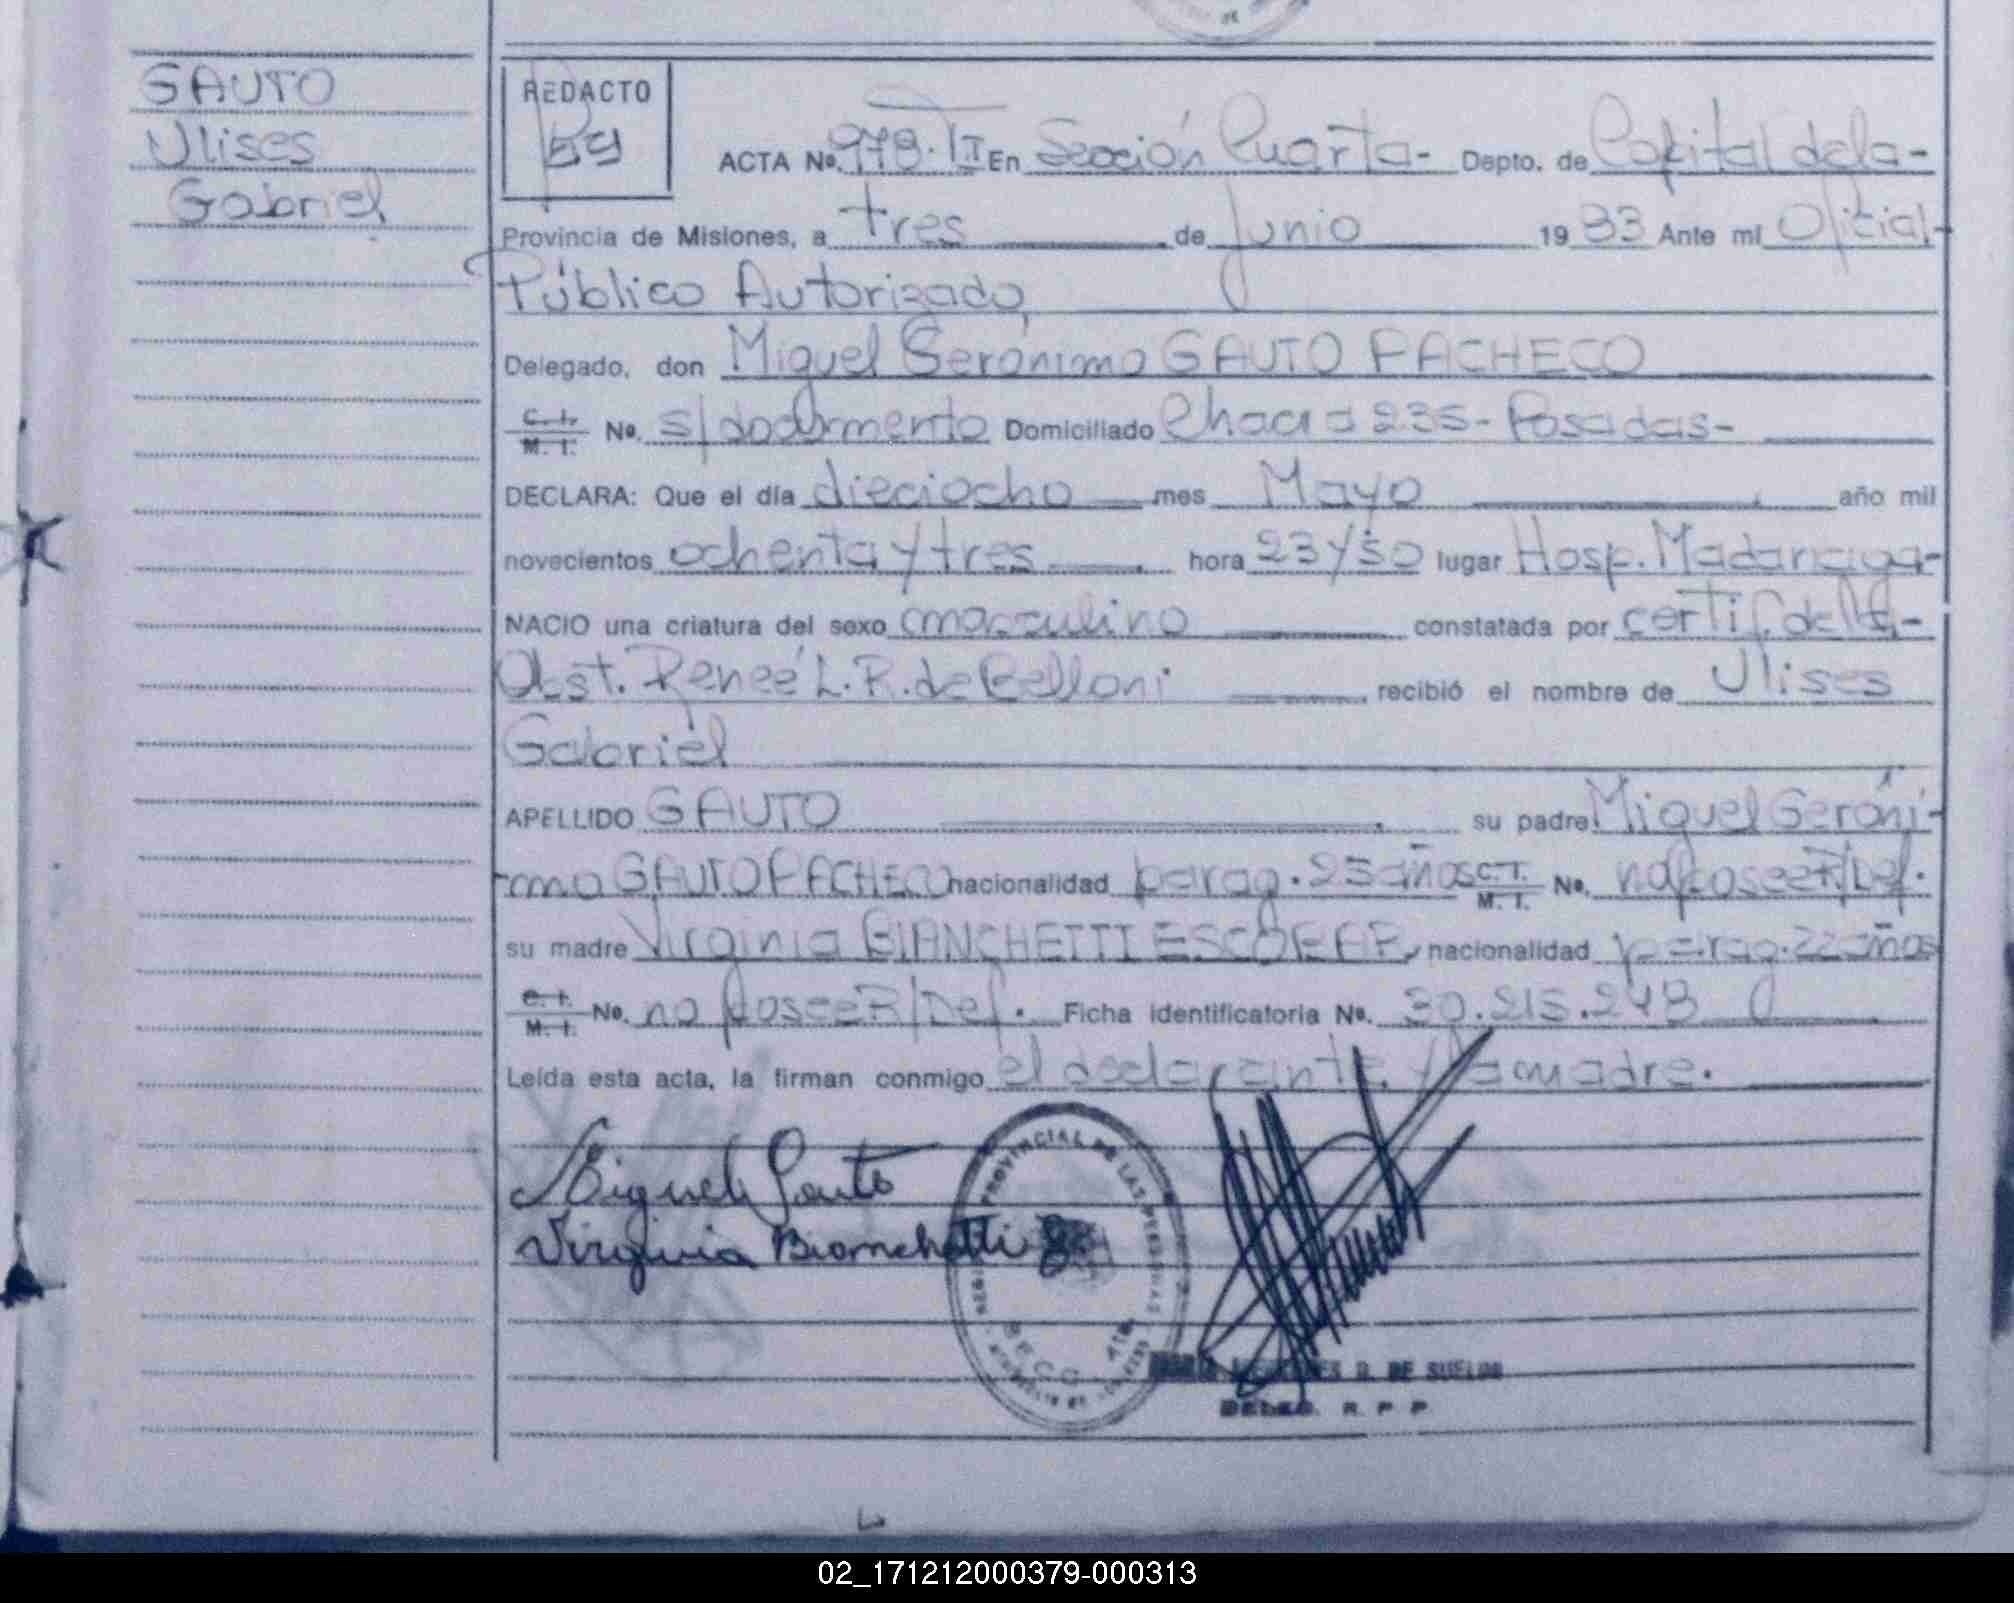 GAUTO
Ulises
Gabriel
REDACTO
ACTA No. 978. II En Sección Cuarta- Depto. de Capital de la-
Provincia de Misiones, a tres de Junio 19 83 Ante mí Oficial-
Público Autorizado,
Delegado, don Miguel Gerónimo GAUTO PACHECO
C. I. M. I. No. s/documento Domiciliado Chacra 235- Posadas-
DECLARA: Que el día dieciocho mes Mayo año mil
novecientos ochenta y tres hora 23 y 50 lugar Hosp. Madariaga-
NACIO una criatura del sexo masculino constatada por certif. de la-
Obst. Reneé L. R. de Belloni recibió el nombre de Ulises
Gabriel
APELLIDO GAUTO su padre Miguel Geróni-
mo GAUTO PACHECO nacionalidad parag. 25 años C. I. M. I. No. no posee R/Def.
su madre Virginia BIANCHETTI ESCOBAR, nacionalidad parag. 22 años
C. I. M. I. No. no posee R/Def. Ficha identificatoria No. 30.215.248
Leída esta acta, la firman conmigo el declarante y la madre.
Miguel Gauto
Virginia Bianchetti
PROVINCIAL DE LAS PERSONAS
D. DE SUELDO
DELEG. R. P. P.
02_171212000379-000313